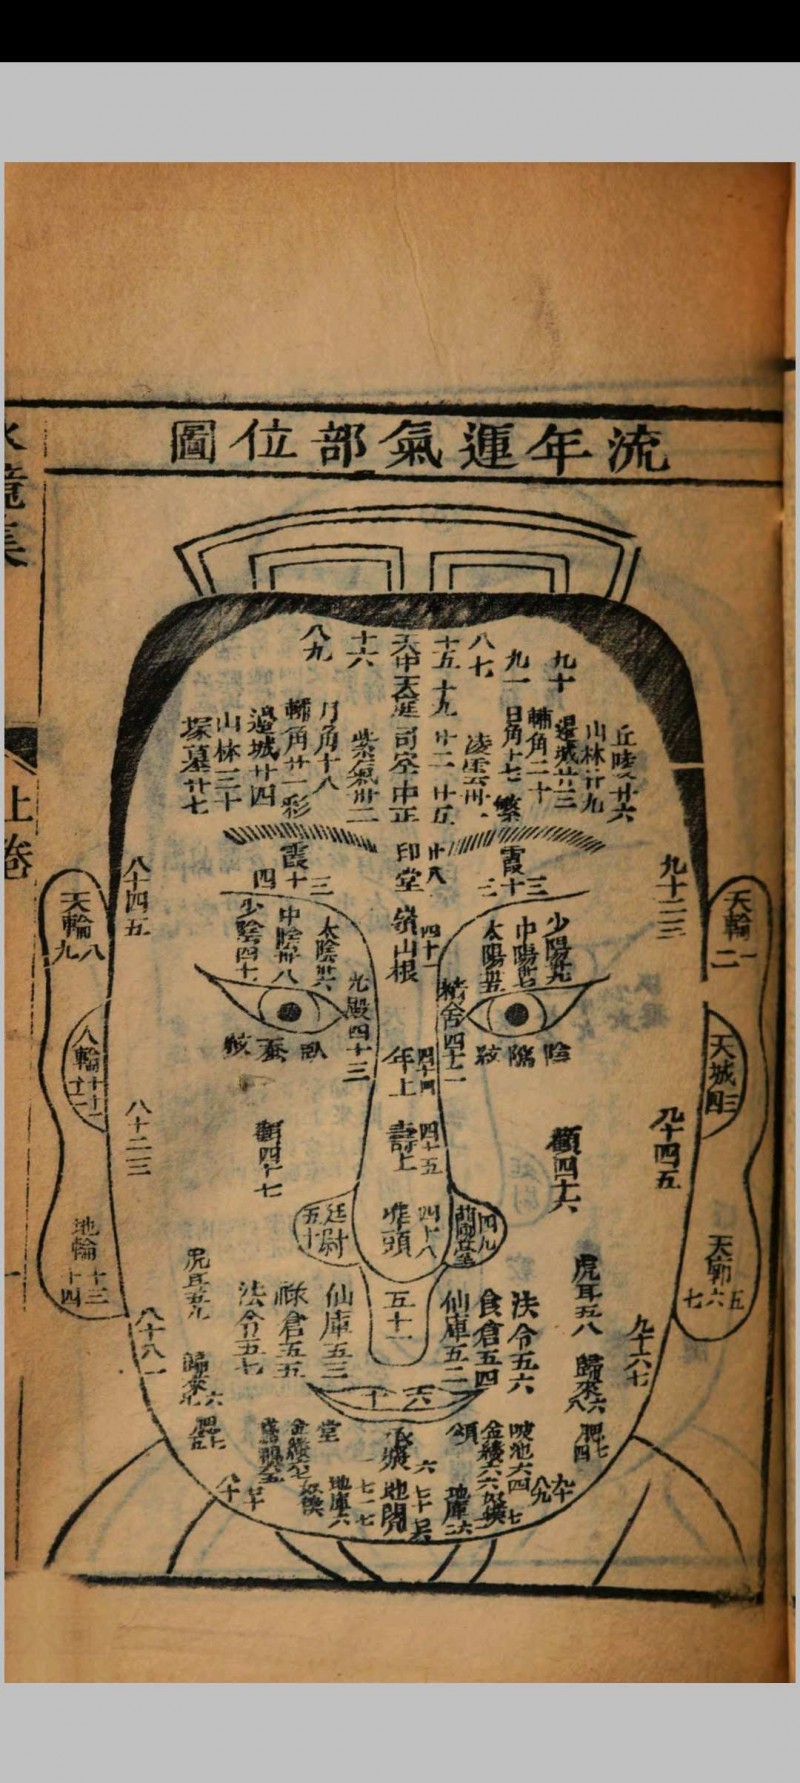 流年運氣部位圖
鏡集
上卷
丘陵廿六
山林廿九
邊城廿三
輔角二十
日角十七
凌雲卅一
繁
霞
三十三
九十
九一
八七
十五
十九
廿二
廿五
天中天庭司空中正
十六
紫氣卅二
八九
月角十八
輔角廿一彩
邊城廿四
山林三十
塚墓廿七
霞
三十四
印堂
廿八
山根
四十一
少陽卅九
中陽卅七
太陽卅五
太陰卅六
中陰卅八
少陰四十
光殿四十三
精舍四十二
臥蠶
年上
四十四
壽上
四十五
準頭
四十八
蘭臺
四九
廷尉
五十
顴四十六
顴四十七
天輪
一二
天城
三四
天郭
五六七
天輪
八九
人輪
十
十一
十二
地輪
十三
十四
八十四五
八十二三
八十八一
九十二三
九十四五
九十六七
虎耳五八
歸來六八
法令五六
食倉五四
仙庫五二
五十一
仙庫五三
祿倉五五
法令五七
虎耳五九
歸來
六十
頌堂
地閣
地庫
地庫六
金縷六六